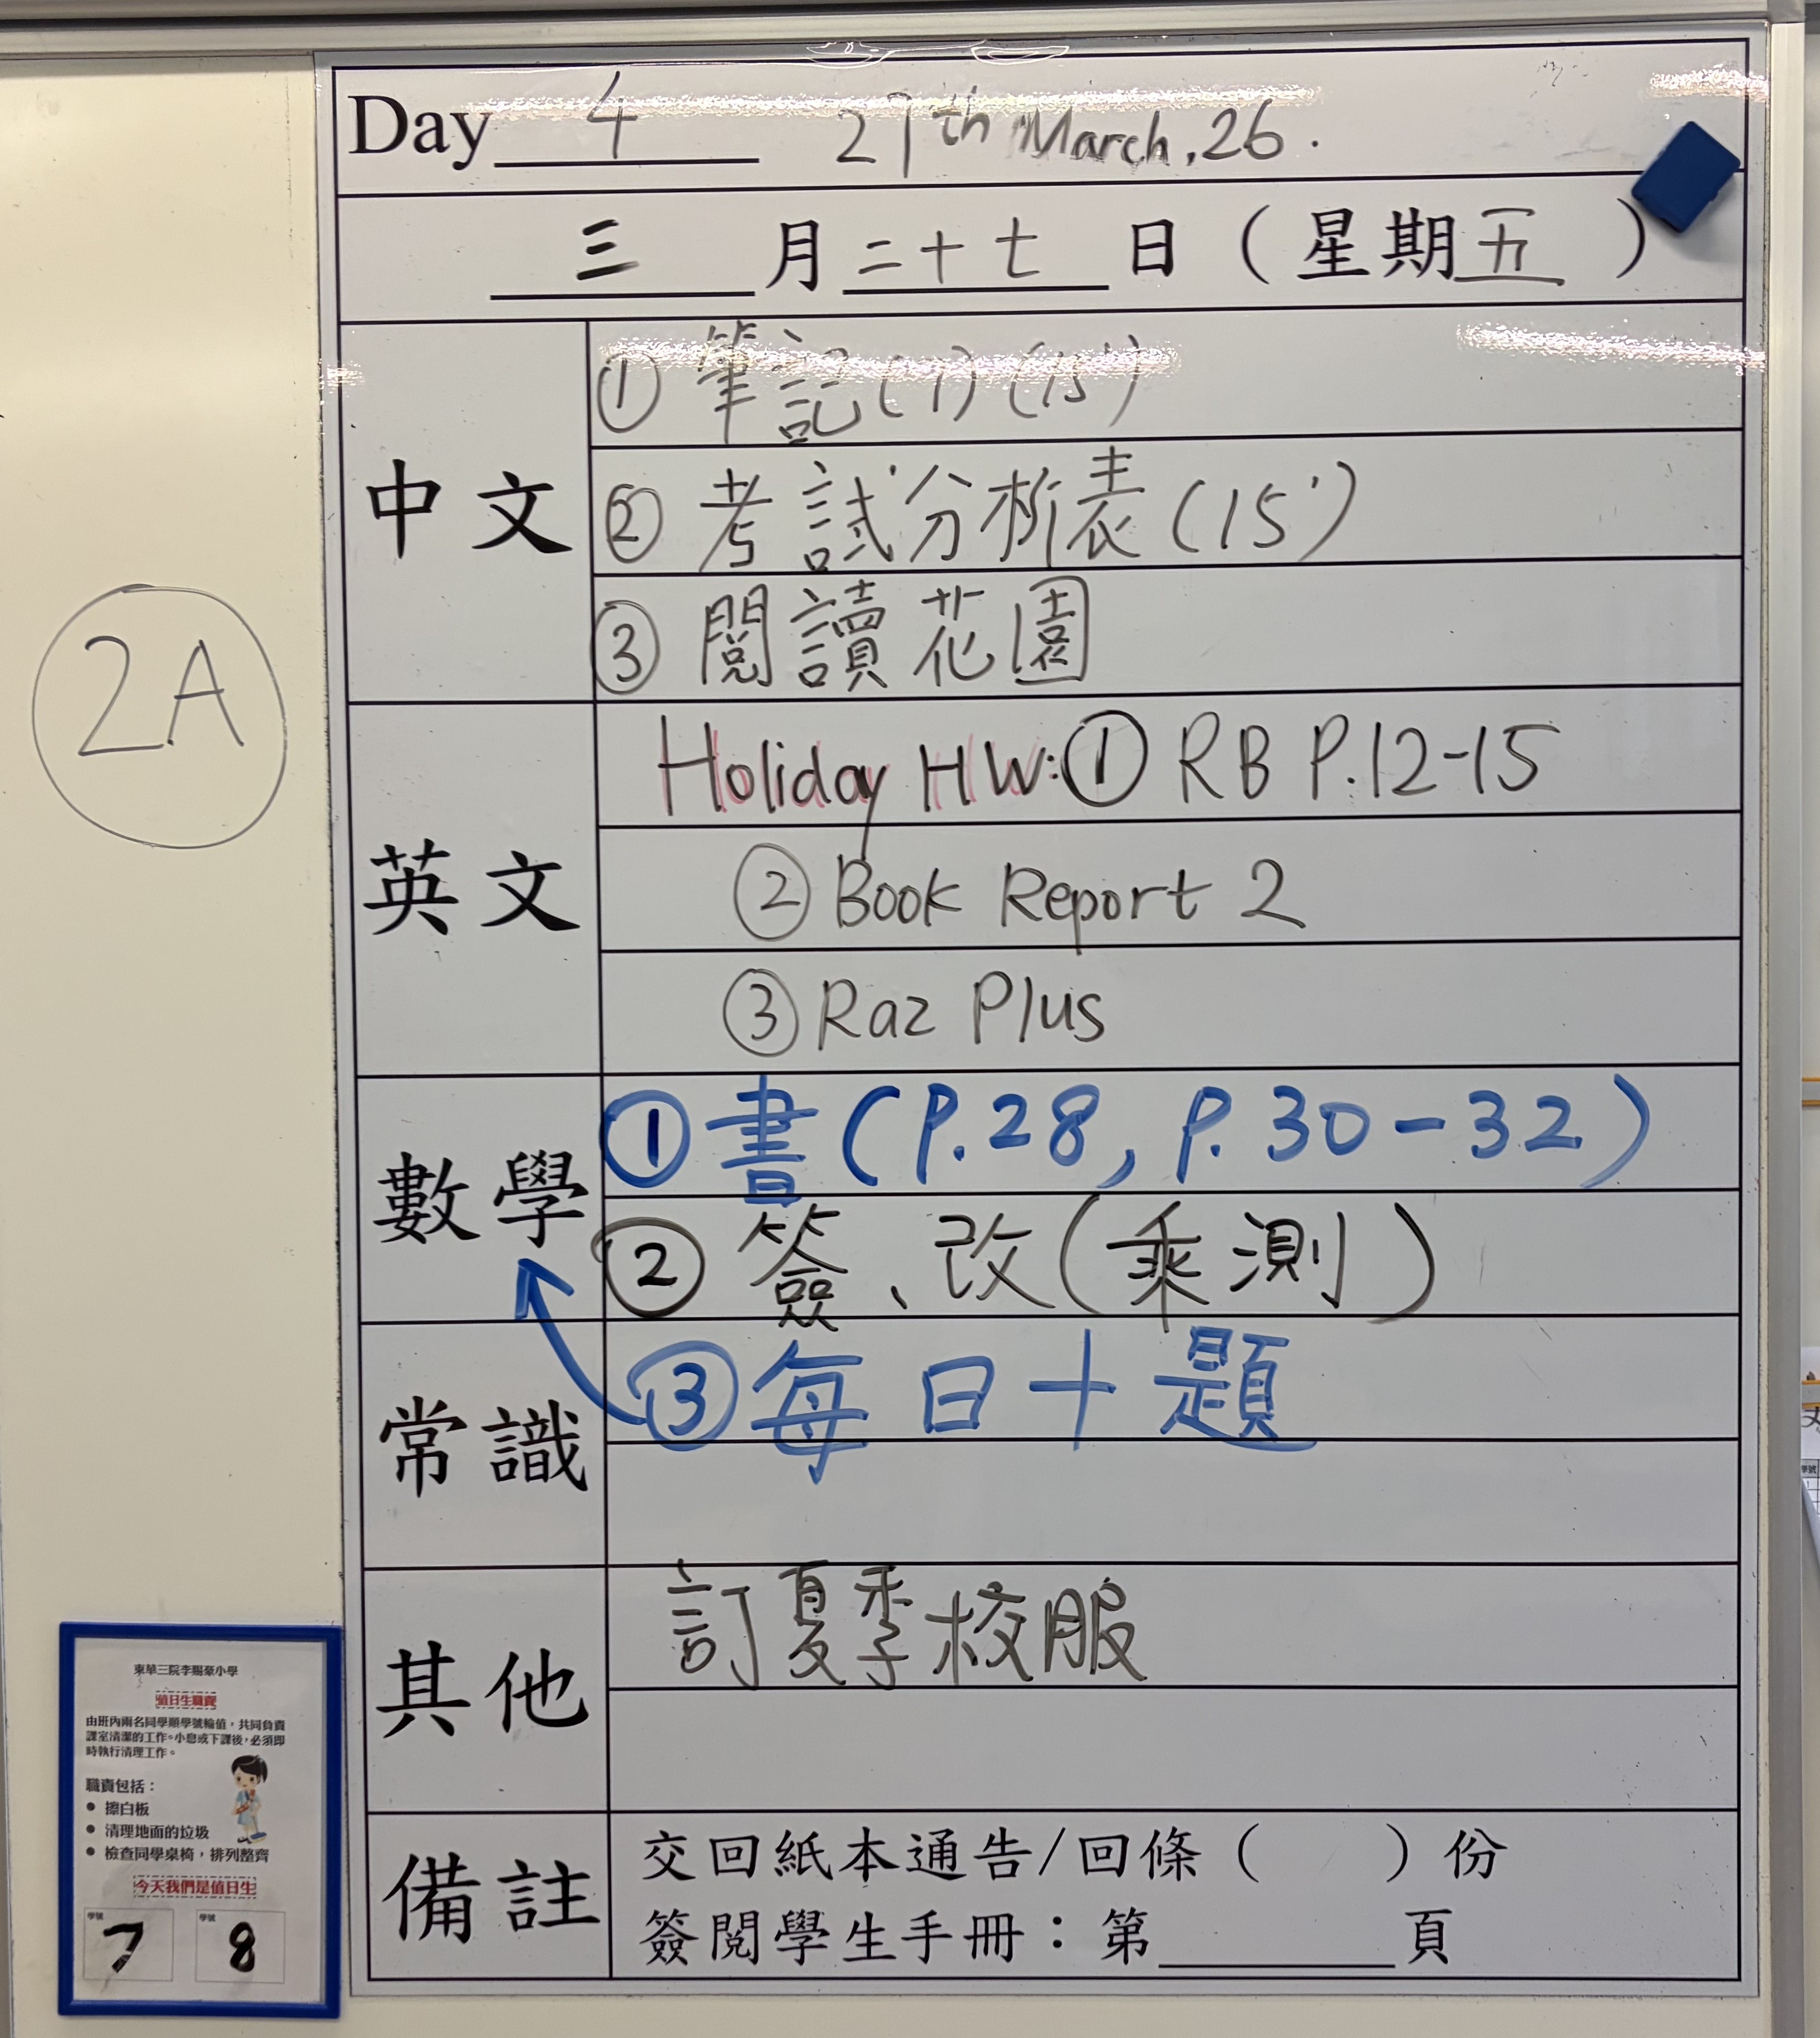 Day 4 27th March, 26.
三 月 二十七 日 ( 星期五 )
中文
① 筆記(7) (15')
② 考試分析表 (15')
③ 閱讀花園
2A
英文
Holiday HW: ① RB P.12-15
② Book Report 2
③ Raz Plus
數學
① 書 (P.28, P.30-32)
② 簽、改 (乘測)
常識
③ 每日十題
其他
訂夏季校服
備註
交回紙本通告/回條 ( ) 份
簽閱學生手冊：第______頁
東華三院李賜豪小學
值日生職責
由班內兩名同學順學號輪值，共同負責
課室清潔的工作。小息或下課後，必須即
時執行清理工作。
職責包括：
• 擦白板
• 清理地面的垃圾
• 檢查同學桌椅，排列整齊
今天我們是值日生
學號 7 學號 8